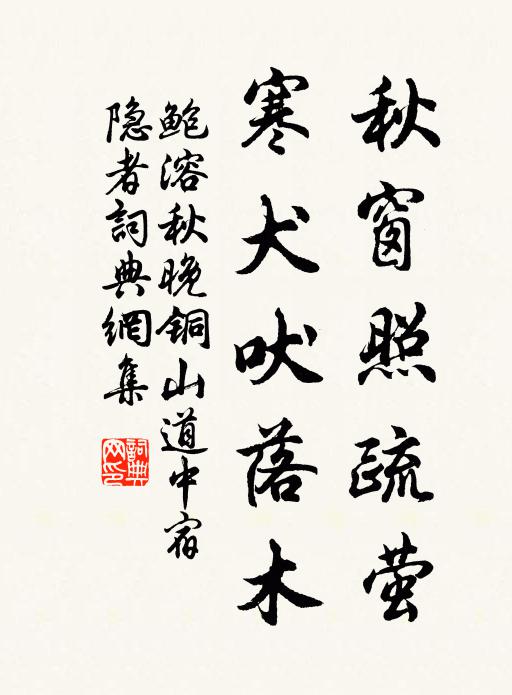 秋窗照疏萤
寒犬吠落木
鲍溶秋晚铜山道中宿
隐者詞典網集
詞典
网印